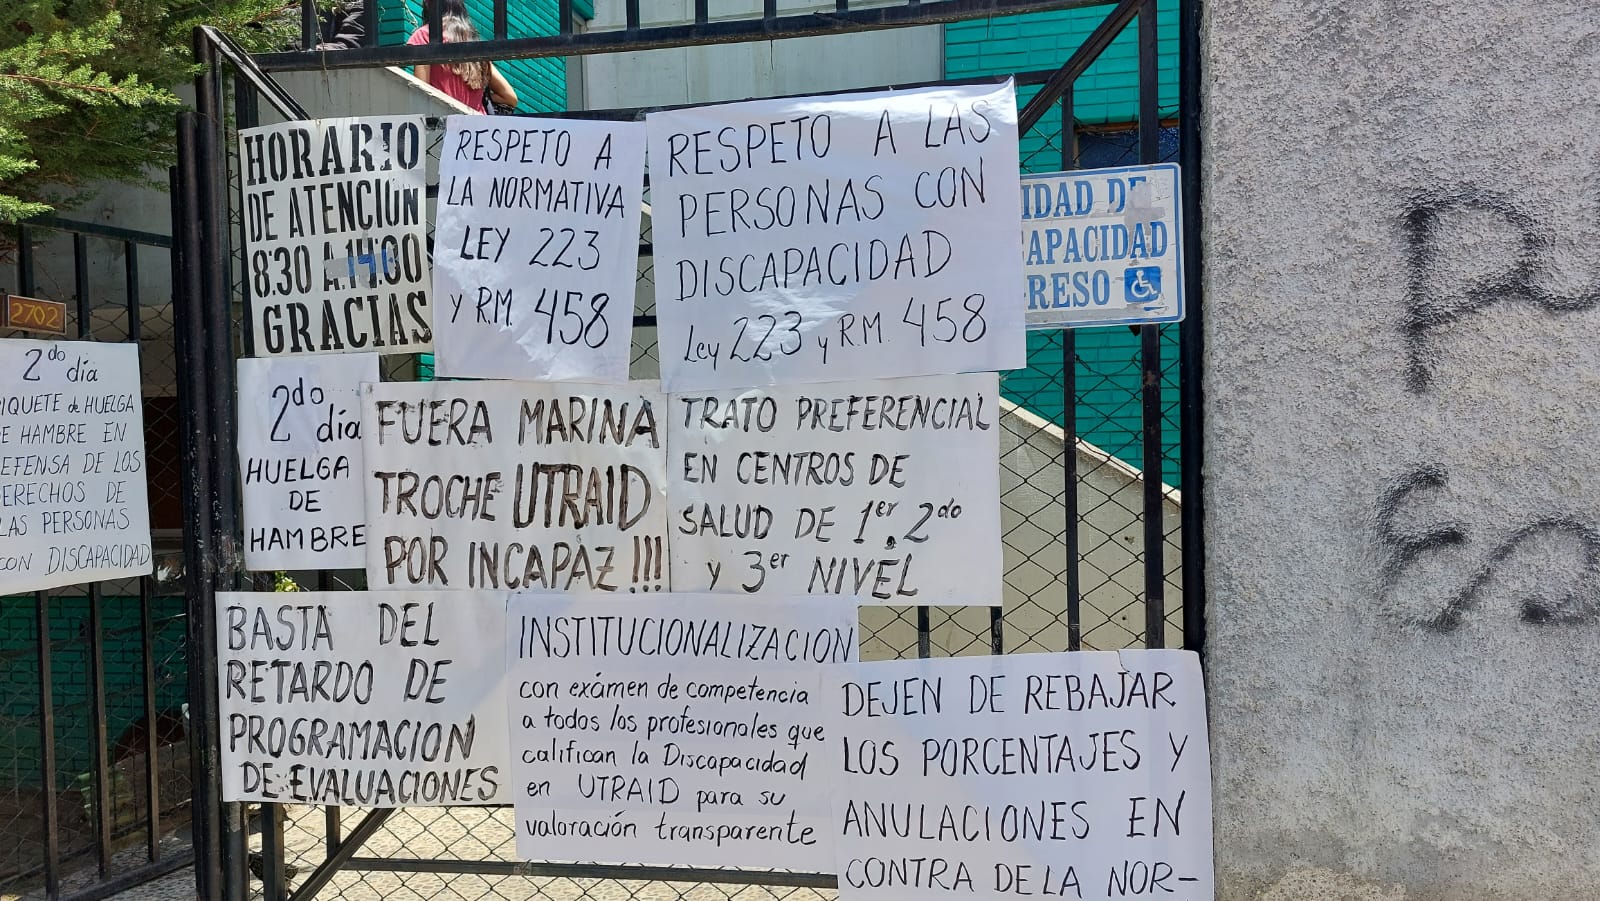 HORARIO
DE ATENCIÓN
8:30 A 14:00
GRACIAS
RESPETO A
LA NORMATIVA
LEY 223
Y R.M. 458
RESPETO A LAS
PERSONAS CON
DISCAPACIDAD
Ley 223 y R.M. 458
IDAD DE
CAPACIDAD
RESO
2702
2do día
PIQUETE de HUELGA
DE HAMBRE EN
DEFENSA DE LOS
DERECHOS DE
LAS PERSONAS
CON DISCAPACIDAD
2do día
HUELGA
DE
HAMBRE
FUERA MARINA
TROCHE UTRAID
POR INCAPAZ !!!
TRATO PREFERENCIAL
EN CENTROS DE
SALUD DE 1er, 2do
y 3er NIVEL
BASTA DEL
RETARDO DE
PROGRAMACION
DE EVALUACIONES
INSTITUCIONALIZACION
con exámen de competencia
a todos los profesionales que
califican la Discapacidad
en UTRAID para su
valoración transparente
DEJEN DE REBAJAR
LOS PORCENTAJES Y
ANULACIONES EN
CONTRA DE LA NOR-